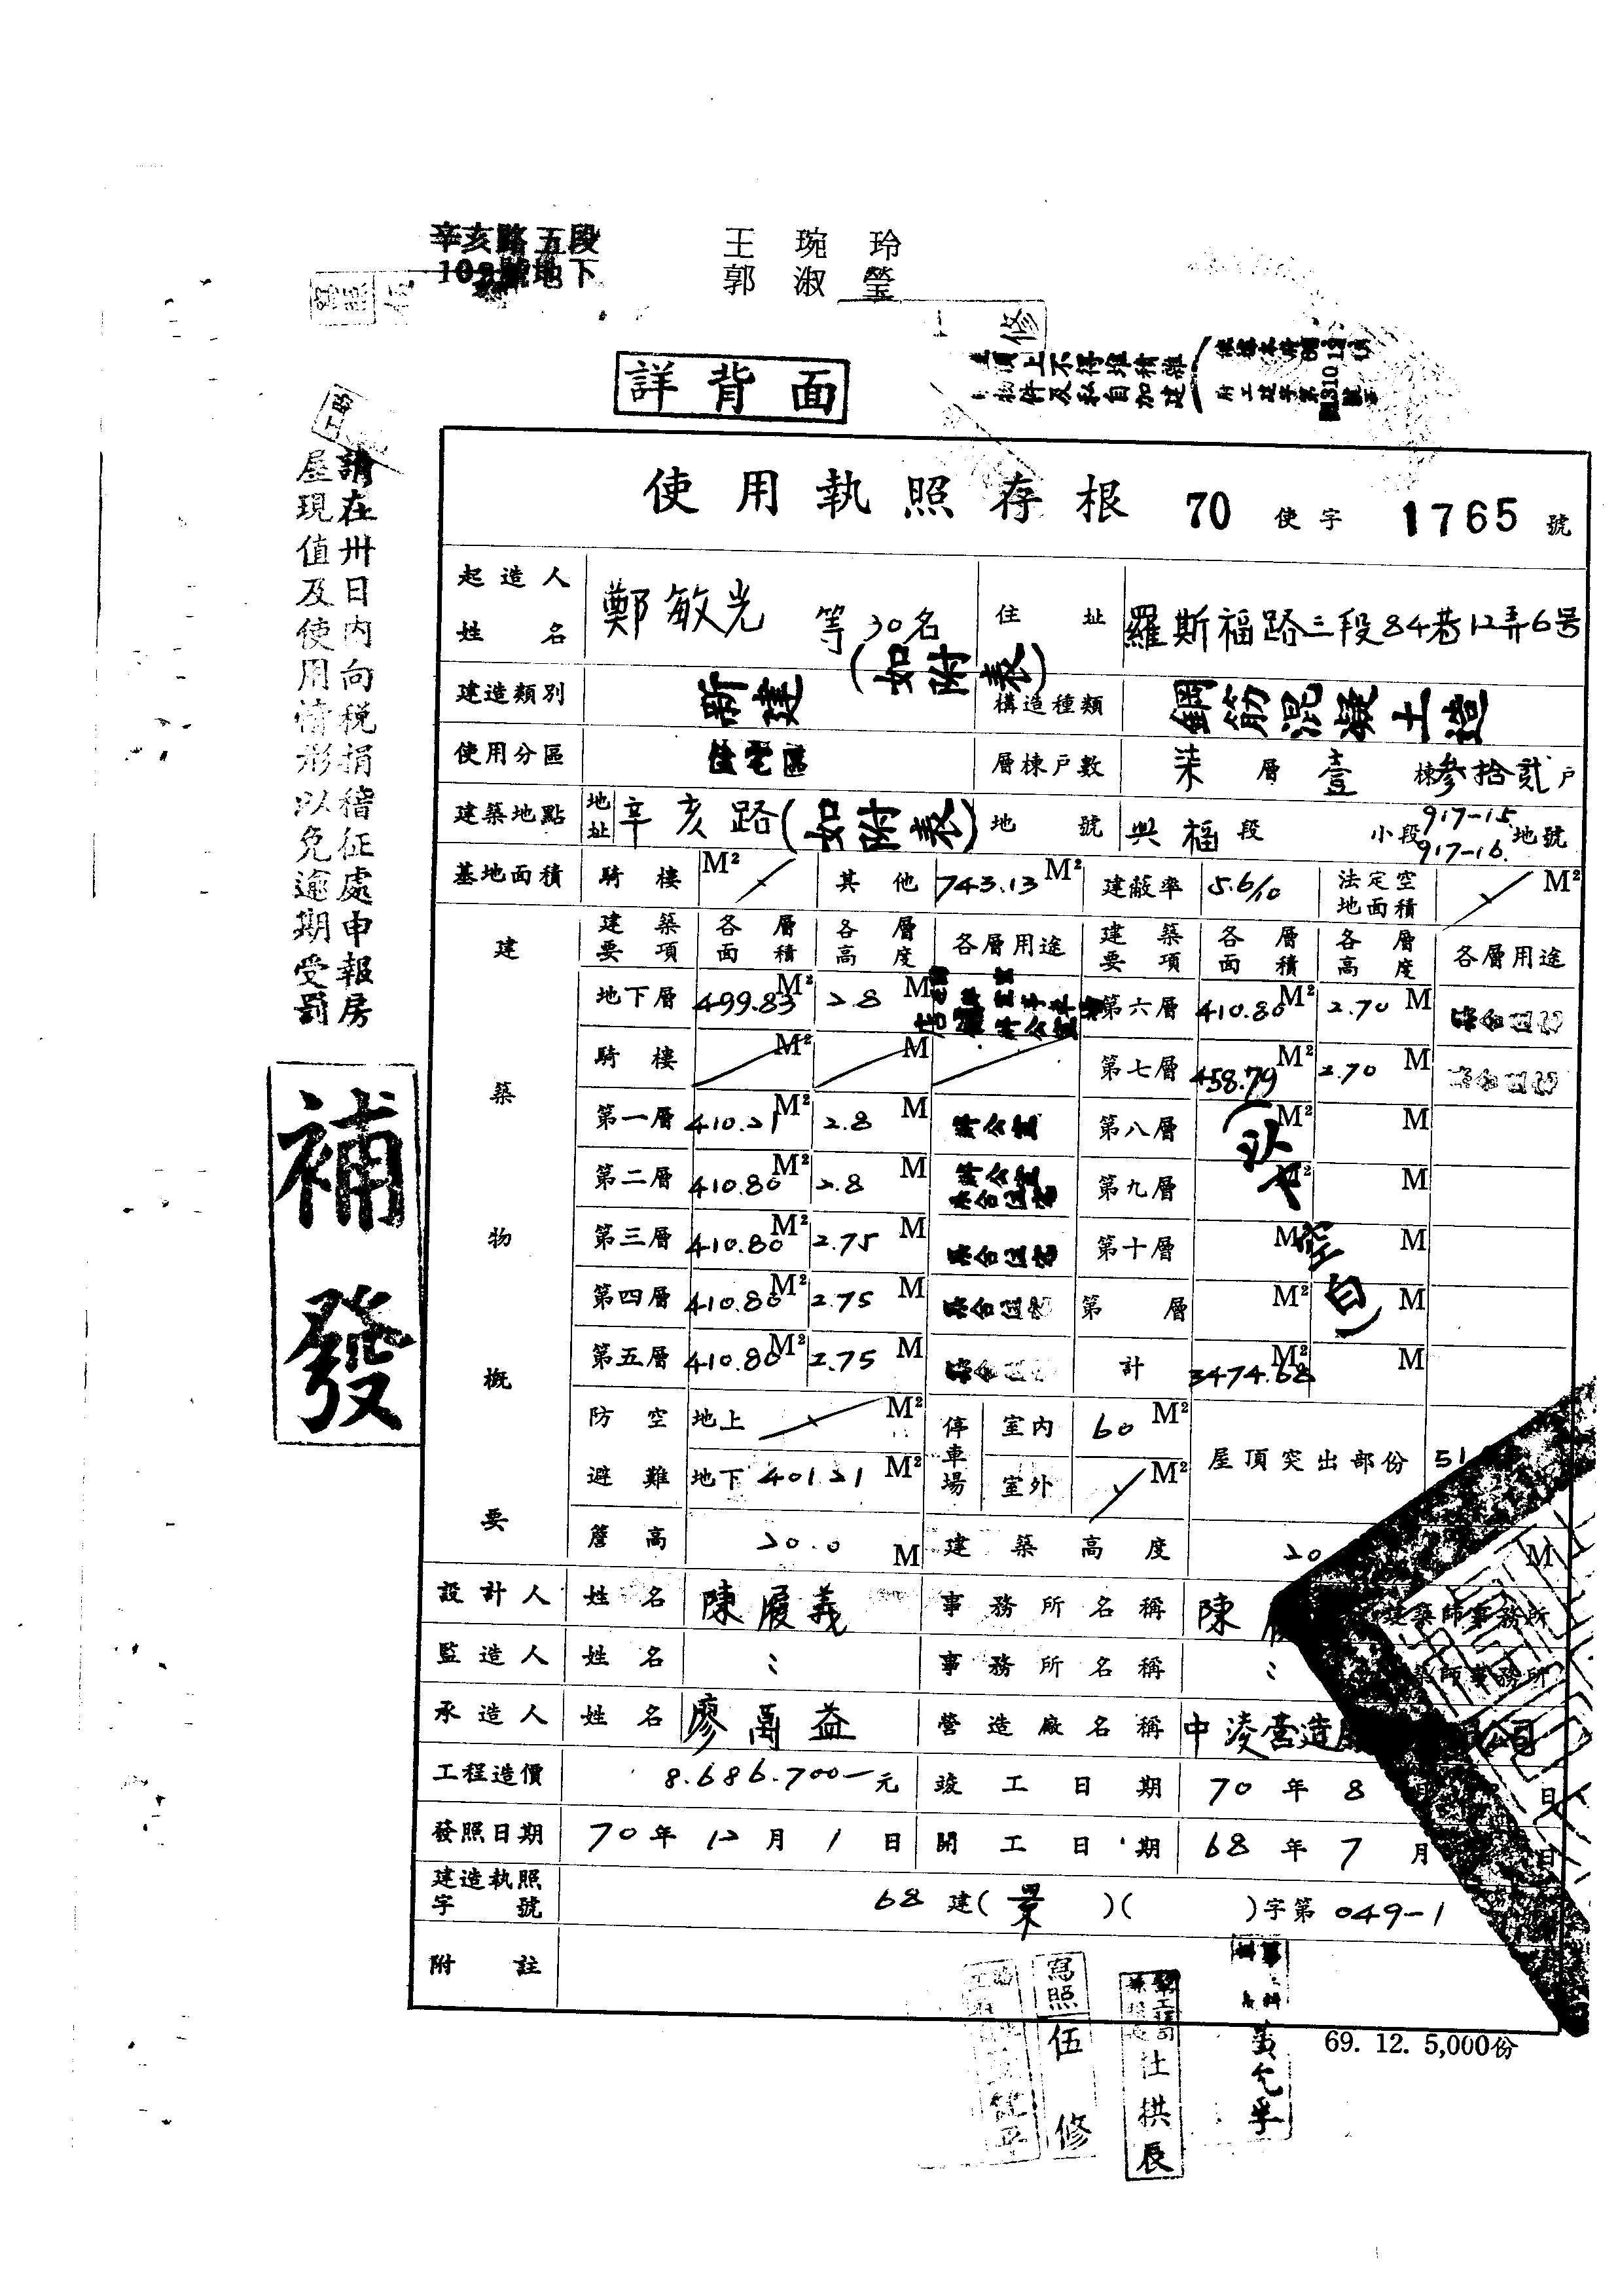 辛亥路五段
108號地下
王琬玲
郭淑瑩
修
頂上不得堆積雜
物件及私自加建
詳背面
請在卅日内向稅捐稽征處申報房
屋現值及使用情形以免逾期受罰
補發
使用執照存根 70 使字 1765 號
起造人姓名 鄭敏光 等30名(如附表) 住址 羅斯福路三段84巷12弄6号
建造類別 新建 構造種類 鋼筋混凝土造
使用分區 住宅區 層棟戶數 柒層壹棟參拾貳戶
建築地點 地址 辛亥路(如附表) 地號 興福段 小段 917-15 917-16. 地號
基地面積 騎樓 M² 其他 743.13 M² 建蔽率 5.6/10 法定空地面積 M²
建築物概要
建築要項 各層面積 各層高度 各層用途 建築要項 各層面積 各層高度 各層用途
地下層 499.83 M² 2.8 M 第六層 410.80 M² 2.70 M 集合住宅
騎樓 M² M 第七層 458.79 M² 2.70 M 集合住宅
第一層 410.21 M² 2.8 M 辦公室 第八層 M² M
第二層 410.80 M² 2.8 M 辦公室 集合住宅 第九層 M² M
第三層 410.80 M² 2.75 M 集合住宅 第十層 M² M
第四層 410.80 M² 2.75 M 集合住宅 第層 M² M
第五層 410.80 M² 2.75 M 集合住宅 計 3474.68 M² M
(以下空白)
防空避難 地上 M² 停車場 室內 60 M² 屋頂突出部份 51
地下 401.21 M² 室外 M²
簷高 20.0 M 建築高度 20 M
設計人 姓名 陳履義 事務所名稱 陳 建築師事務所
監造人 姓名 〃 事務所名稱 〃 築師事務所
承造人 姓名 廖萬益 營造廠名稱 中淩营造 公司
工程造價 8.686.700— 元 竣工日期 70年8 日
發照日期 70年12月1日 開工日期 68年7月 日
建造執照字號 68建(景)( )字第049-1
附註
寫照 伍修
黃允孚
69. 12. 5,000份